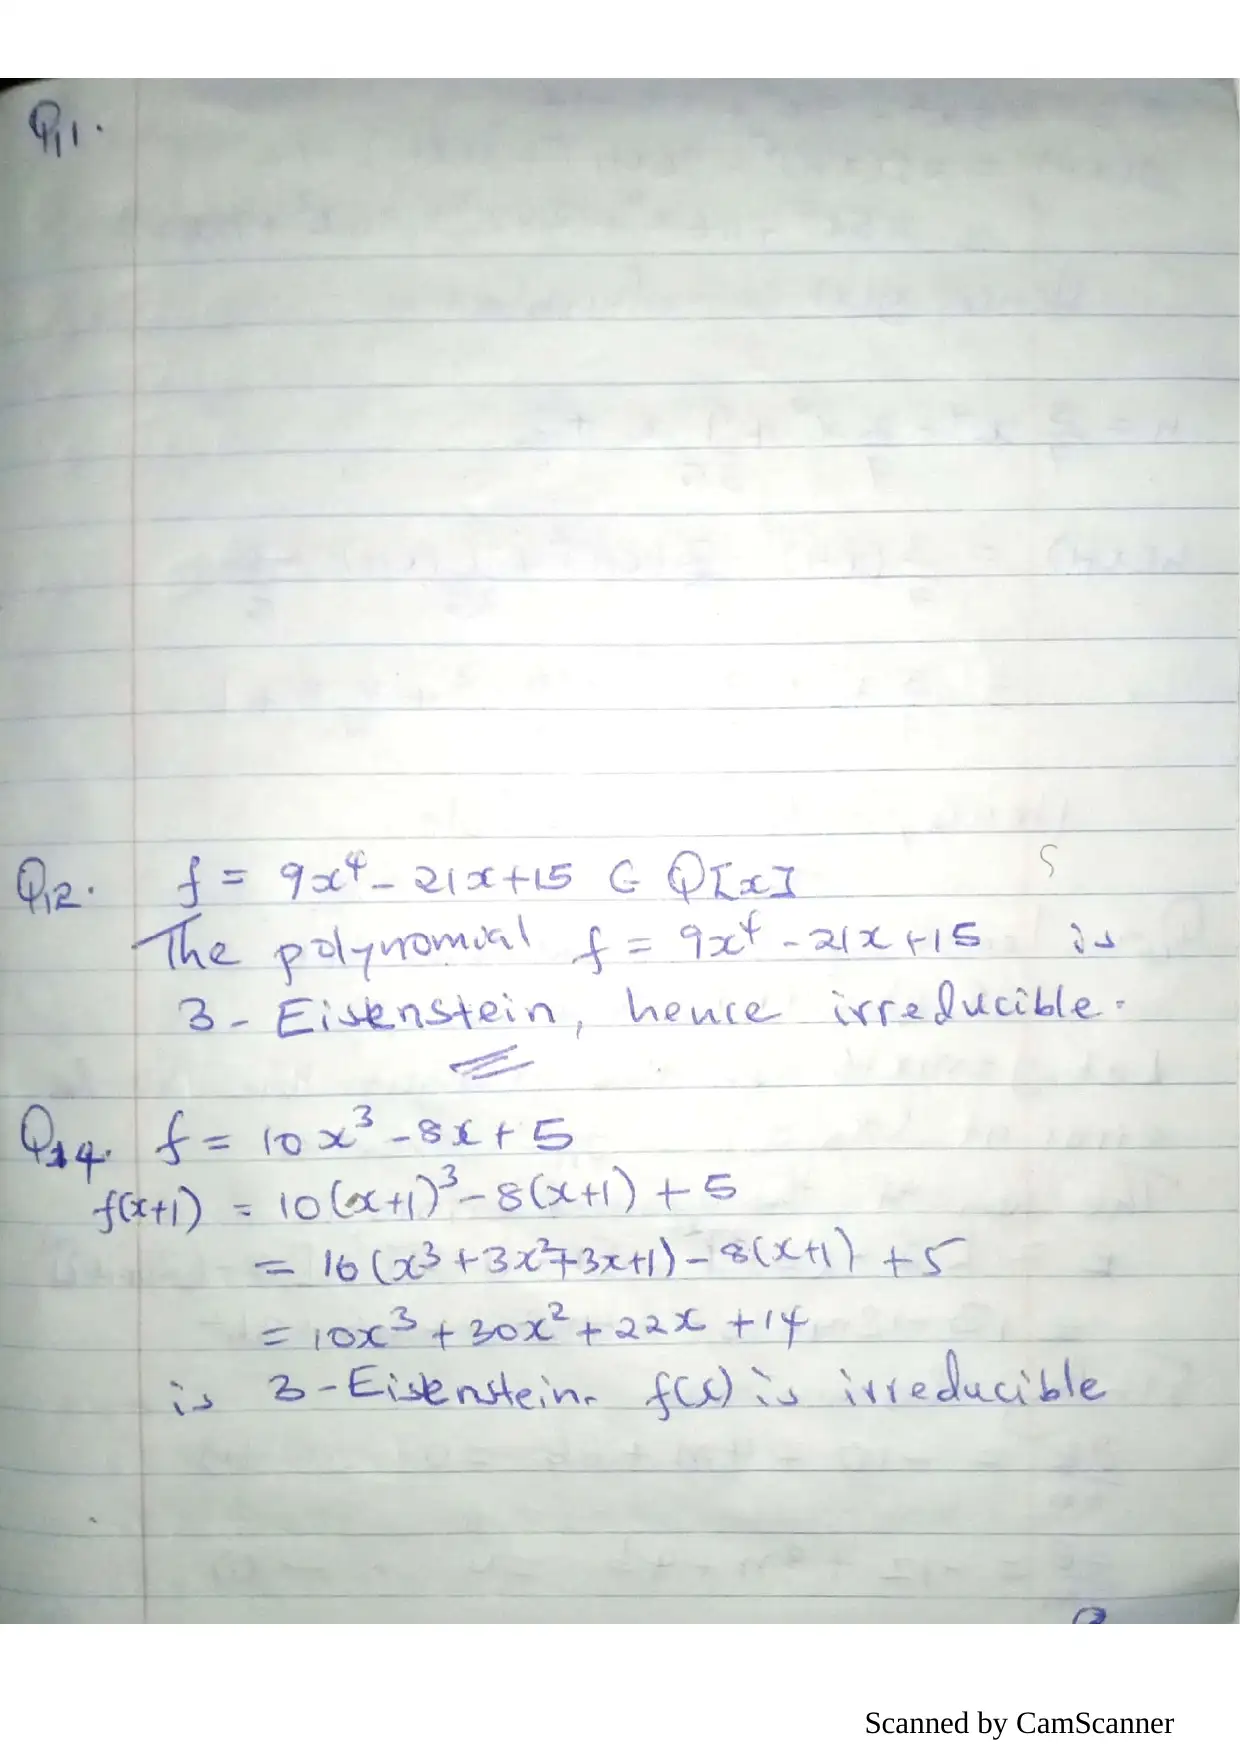 Q11.
Q12. f = 9x⁴ - 21x + 15 ∈ Q[x]
The polynomial f = 9x⁴ - 21x + 15 is
3 - Eisenstein, hence irreducible.
Q14. f = 10x³ - 8x + 5
f(x+1) = 10(x+1)³ - 8(x+1) + 5
= 10(x³ + 3x² + 3x + 1) - 8(x+1) + 5
= 10x³ + 30x² + 22x + 14
is 3 - Eisenstein. f(x) is irreducible
Scanned by CamScanner